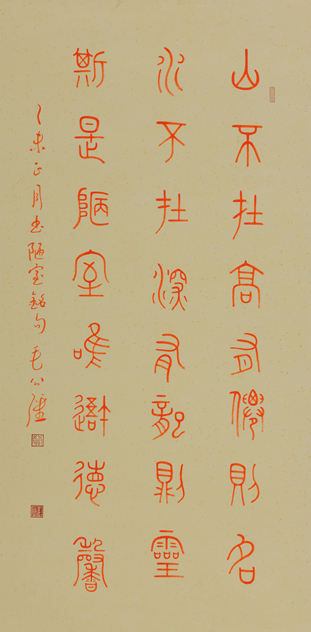 山不在高有僊則名
水不在深有龍則靈
斯是陋室唯吾德馨
乙未正月書陋室銘句 毛公